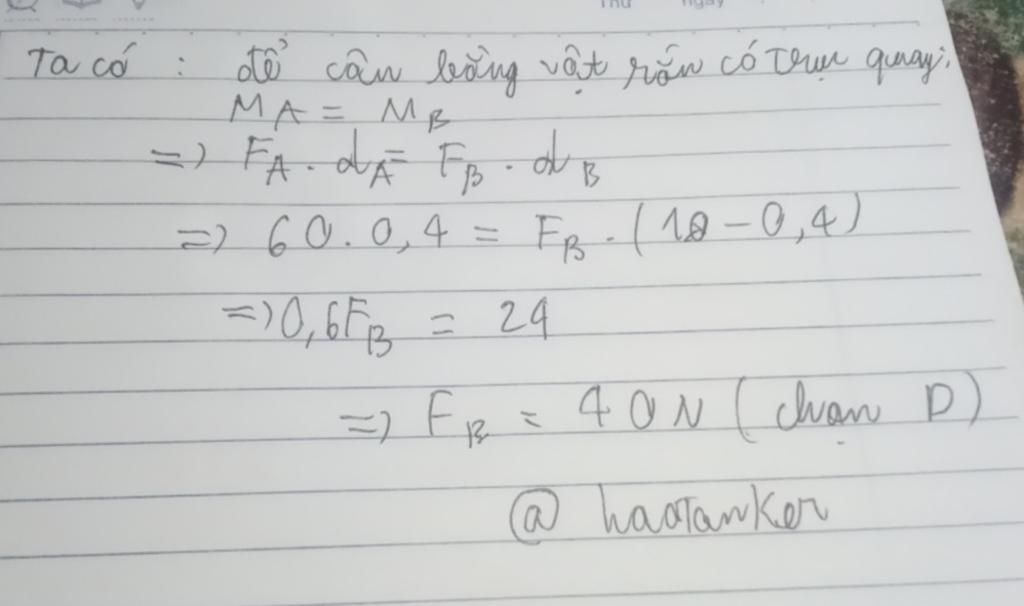 Thứ ngày
Ta có : để cân bằng vật rắn có trục quay:
MA = MB
=> FA . dA = FB . dB
=> 60.0,4 = FB . (10 - 0,4)
=> 0,6FB = 24
=> FB = 40N (chọn D)
@ haotanker